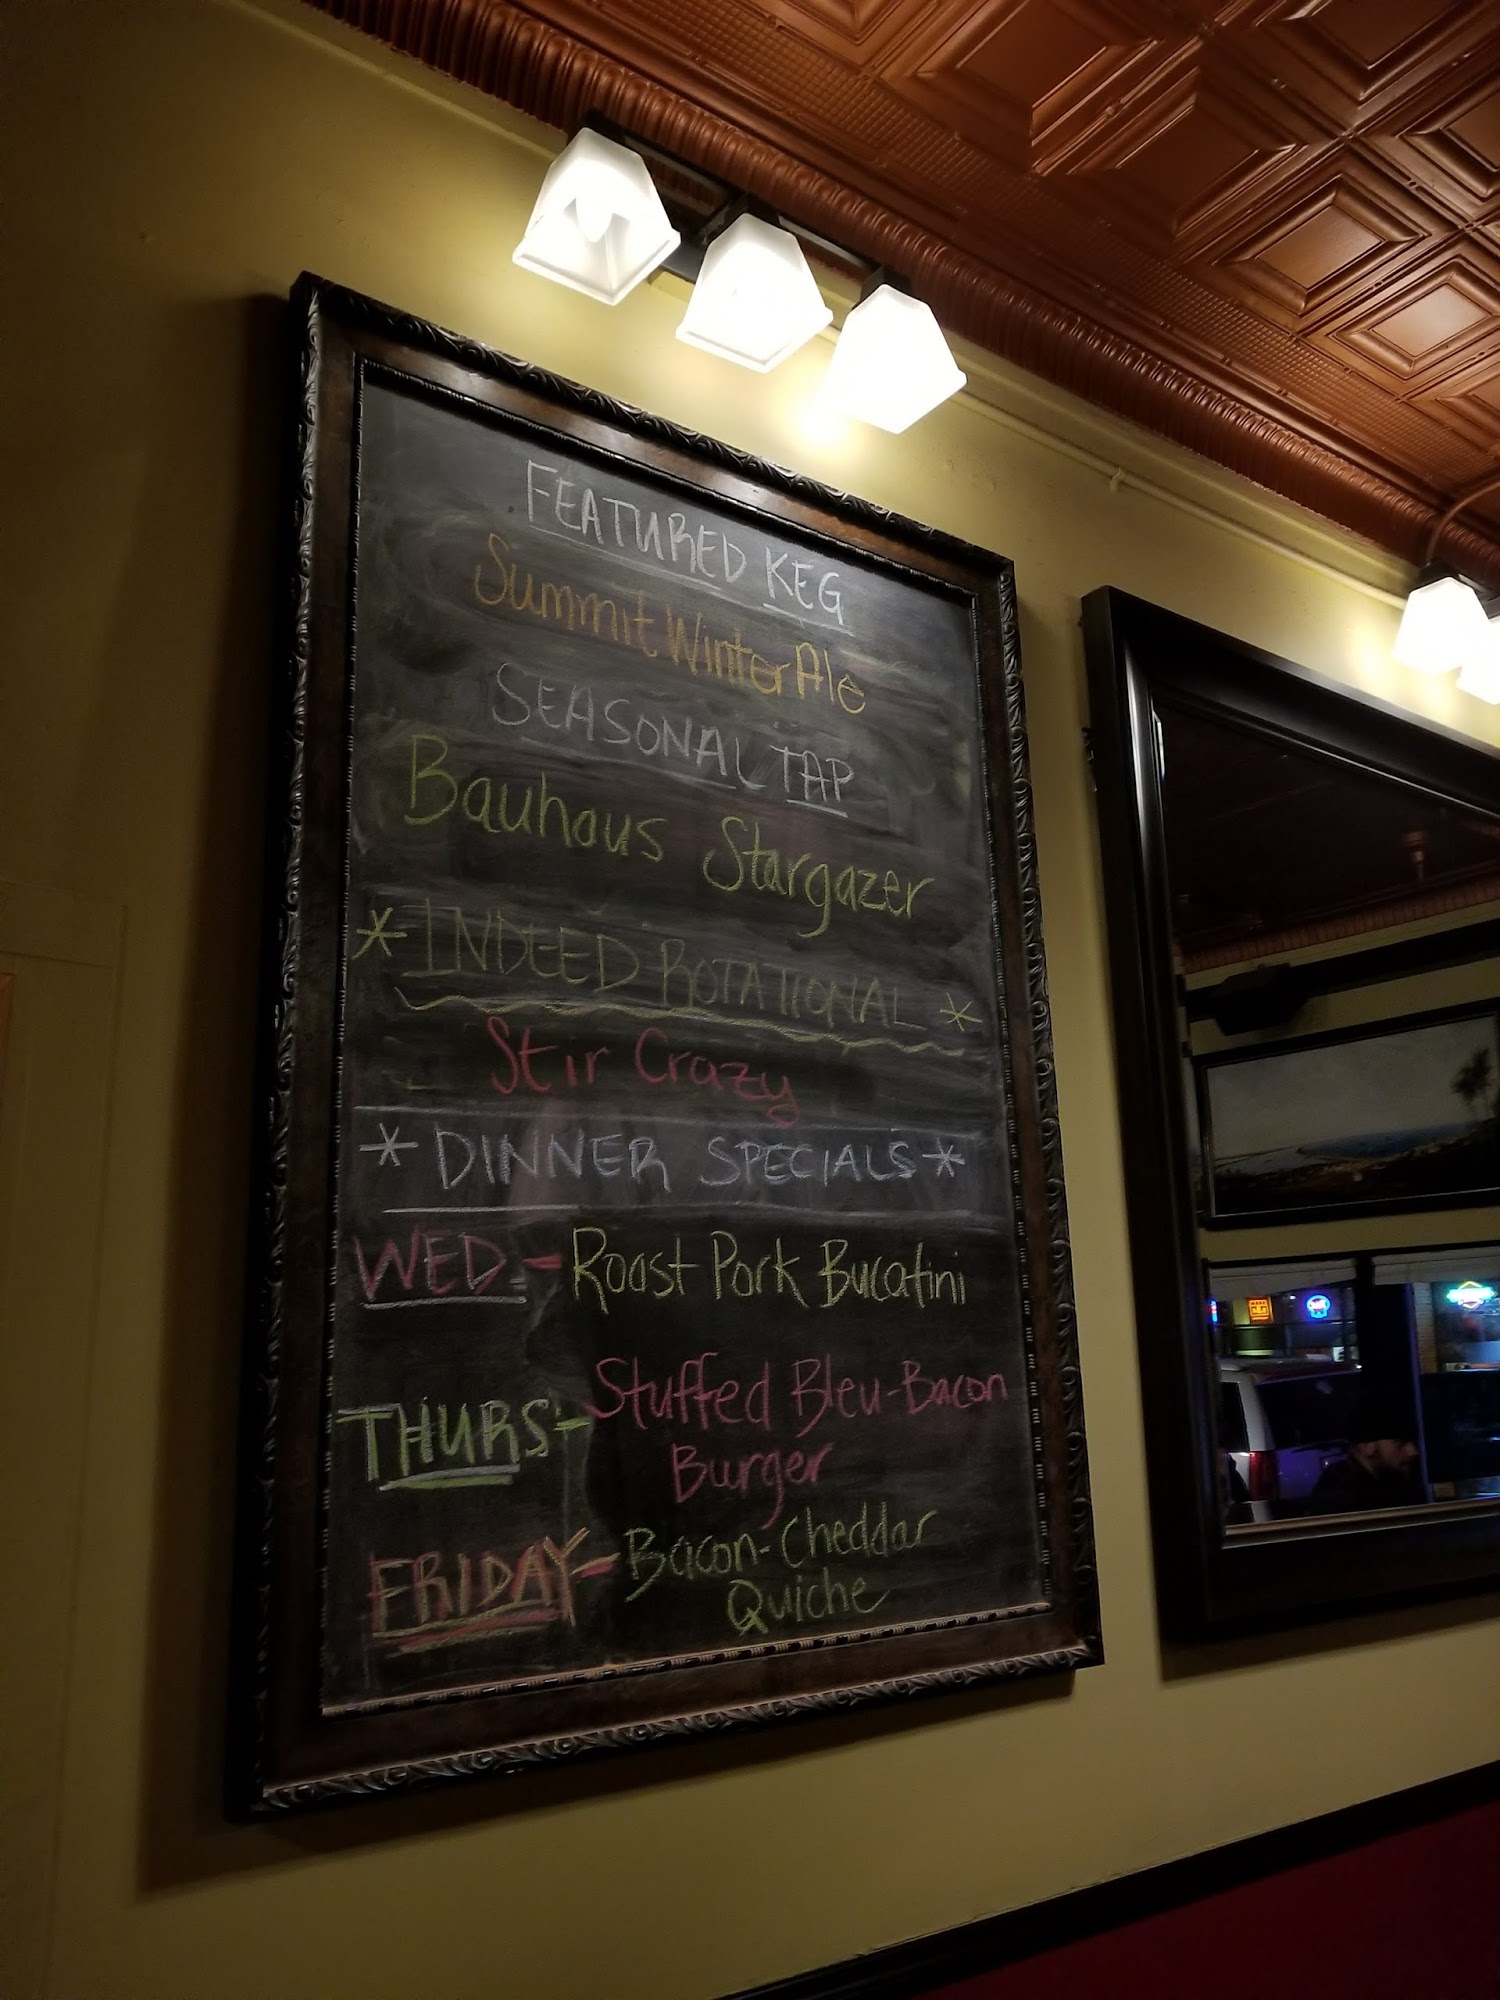 FEATURED KEG
Summit Winter Ale
SEASONAL TAP
Bauhaus Stargazer
* INDEED ROTATIONAL *
Stir Crazy
* DINNER SPECIALS *
WED - Roast Pork Bucatini
THURS - Stuffed Bleu-Bacon
Burger
FRIDAY - Bacon-Cheddar
Quiche